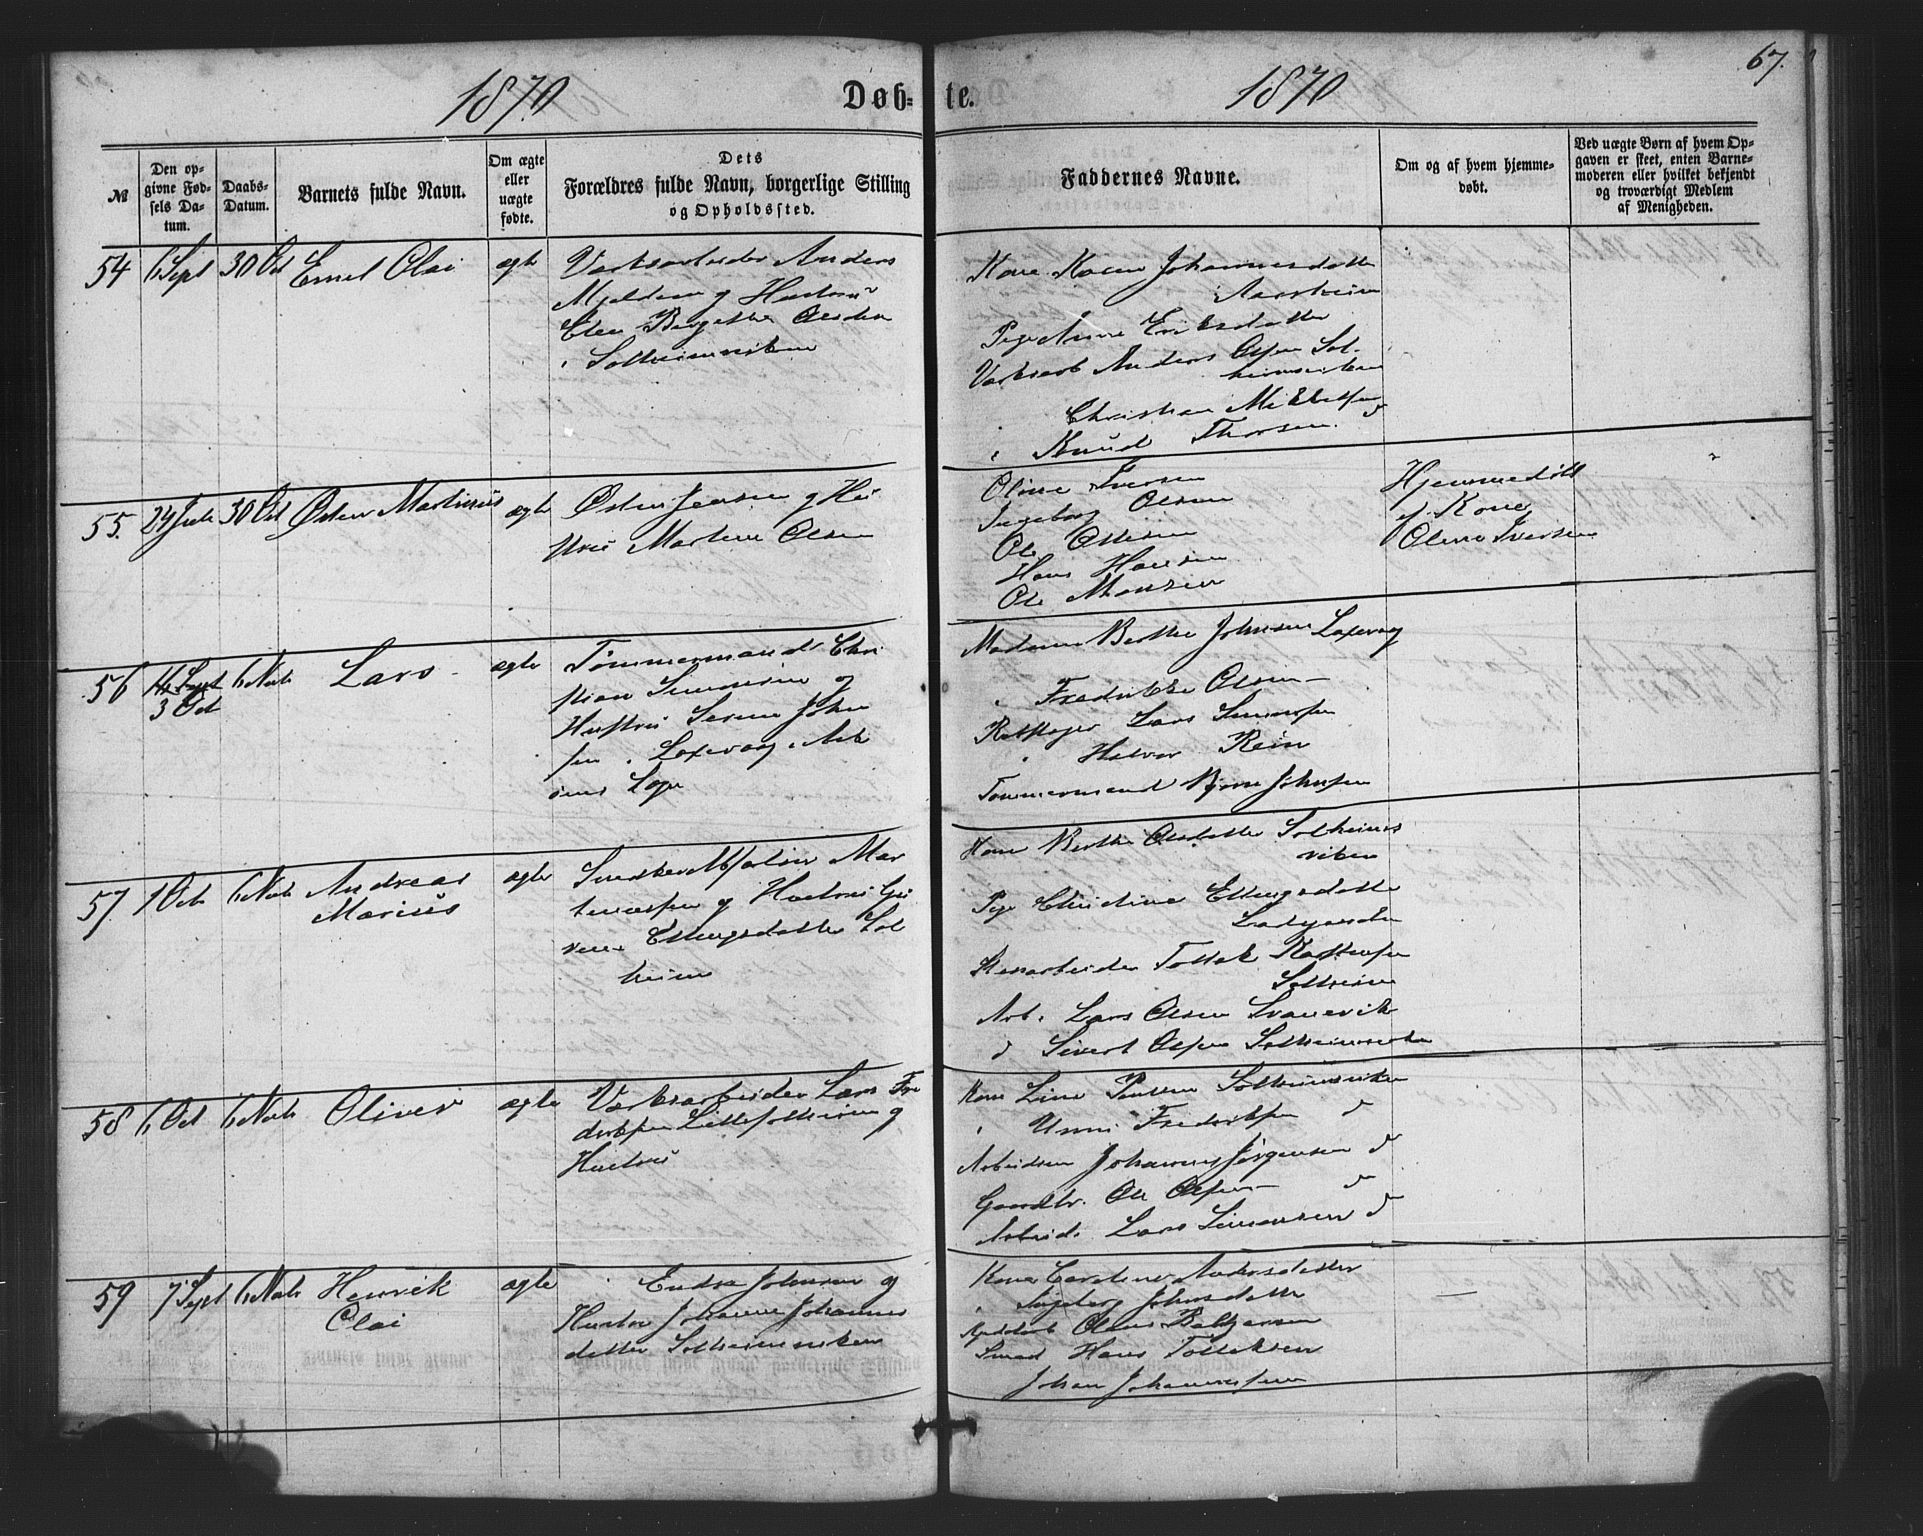 1870 Døb- te. 1870 67.
№
Den opgivne Fødsels Datum.
Daabs-Datum.
Barnets fulde Navn.
Om ægte eller uægte fødte.
Dets Forældres fulde Navn, borgerlige Stilling og Opholdssted.
Faddernes Navne.
Om og af hvem hjemmedøbt.
Ved uægte Børn af hvem Opgaven er skeet, enten Barnemoderen eller hvilket bekjendt og troværdigt Medlem af Menigheden.
54 6 Sept 30 Oct Emil Olai ægte
Værksarbeider Anders
og Hustru
i Solheimsviken
Kone Karen Johannesdatter
Pige Anne Eriksdatter
Værksarb Anders Olsen Sol-
heimsviken
Christian Mikkelsen d
Knud Thorsen
55. 24 Juli 30 Oct Østen Martinus ægte
Østen Jensen og Hu
stru Martine Olsen
Oline Iversen
Ingeborg Olsen
Ole Olsen
Hans Hansen
Ole Monsen
Hjemmedøbt
af Kone
Oline Iversen
56 3 Oct 6 Nov Lars ægte
Tømmermand Chri
stian Simonsen og
Hustru Serine John
sen, Laxevaag
Madame Berthe Johnsen Laxevaag
Fredrikke Olsen
Lars Simonsen
Halvor
Tømmermand Johnsen
57 1 Oct 6 Nov Andreas
Marius ægte
Snedker Mar
tinussen og Hustru Gu
Ellingsdatter Sol
heim
Kone Berthe Olsdatter Solheims
viken
Pige Christine Ellingsdatter
Stenarbeider Tollak
Solheim
Arb. Lars Olsen
d Sivert Olsen Solheimsviken
58 6 Oct 6 Nov Oliver ægte
Værksarbeider Lars Fre
driksen Lillesolheim og
Hustru
Kone Line Solheimsviken
Fredriksen d
Arbeidsm Johannes Jørgensen d
Gaardbr. Ole Olsen d
Arbeid. Lars Simonsen d
59 7 Sept 6 Nov Henrik
Olai ægte
Endre Johnsen og
Hustru Johanne Johannes
datter Solheimsviken
Kone Caroline Andersdatter
Ingeborg Johnsdatter
Olaus Baltzersen
Smed Hans Tollaksen
Johan Johannessen